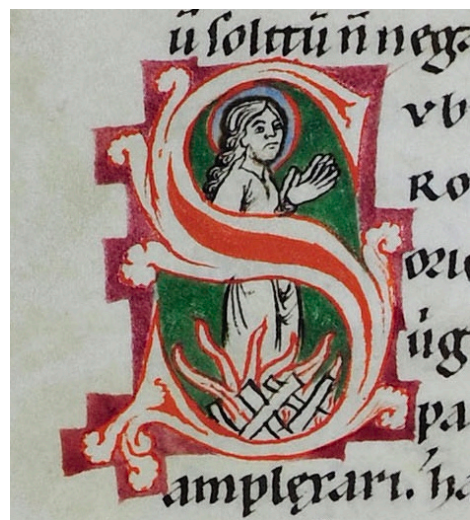 ū solitū ñ neg
S
vb
Ro
orie
ūg
pa
amplęxari. ha